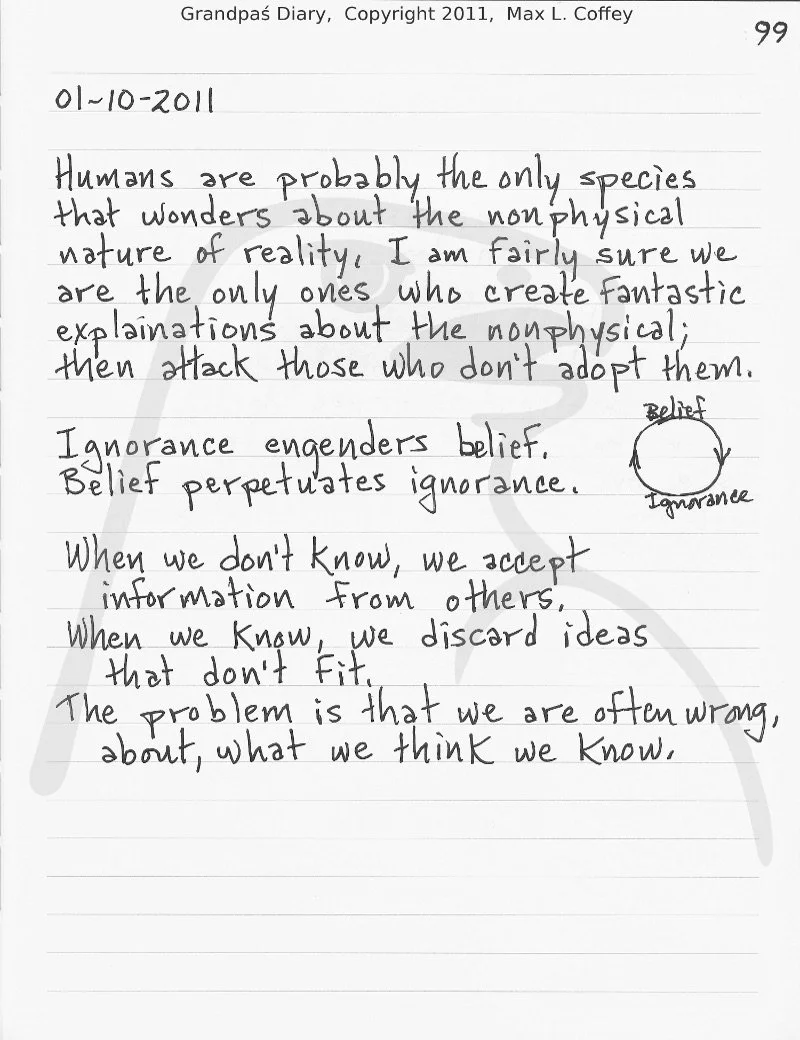 Grandpaś Diary, Copyright 2011, Max L. Coffey
99
01-10-2011
Humans are probably the only species
that wonders about the nonphysical
nature of reality, I am fairly sure we
are the only ones who create fantastic
explainations about the nonphysical;
then attack those who don't adopt them.
Belief
Ignorance engenders belief.
Belief perpetuates ignorance.
Ignorance
When we don't know, we accept
information from others.
When we know, we discard ideas
that don't fit.
The problem is that we are often wrong,
about, what we think we know.